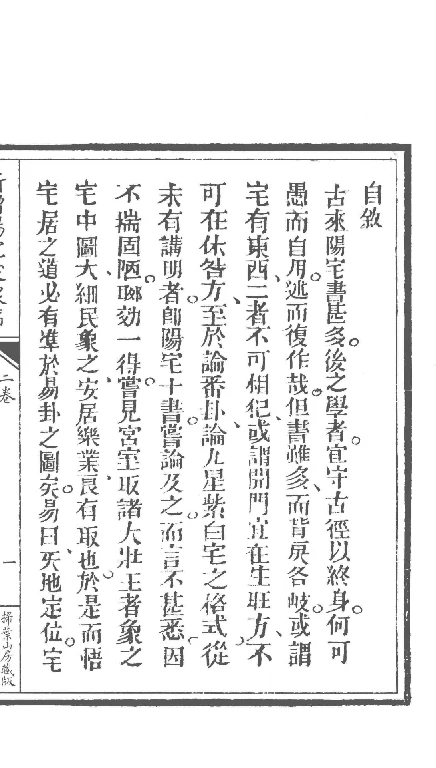 自敘
古來陽宅書甚多。後之學者。宜守古徑以終身。何可
愚而自用。述而復作哉。但書雖多、而背戾各岐。或謂
宅有東西二者不可相犯、或謂開門宜在生旺方、不
可在休咎方、至於論番卦、論九星紫白宅之格式從
未有講明者。卽陽宅十書。嘗論及之。而言不甚悉因
不揣固陋、聊効一得。嘗見宮室取諸大壯、王者象之
宅中圖大、細民象之、安居樂業、良有取也。於是而悟
宅居之道必有準於易卦之圖矣。易曰、天地定位。宅
二卷
一
掃葉山房藏版